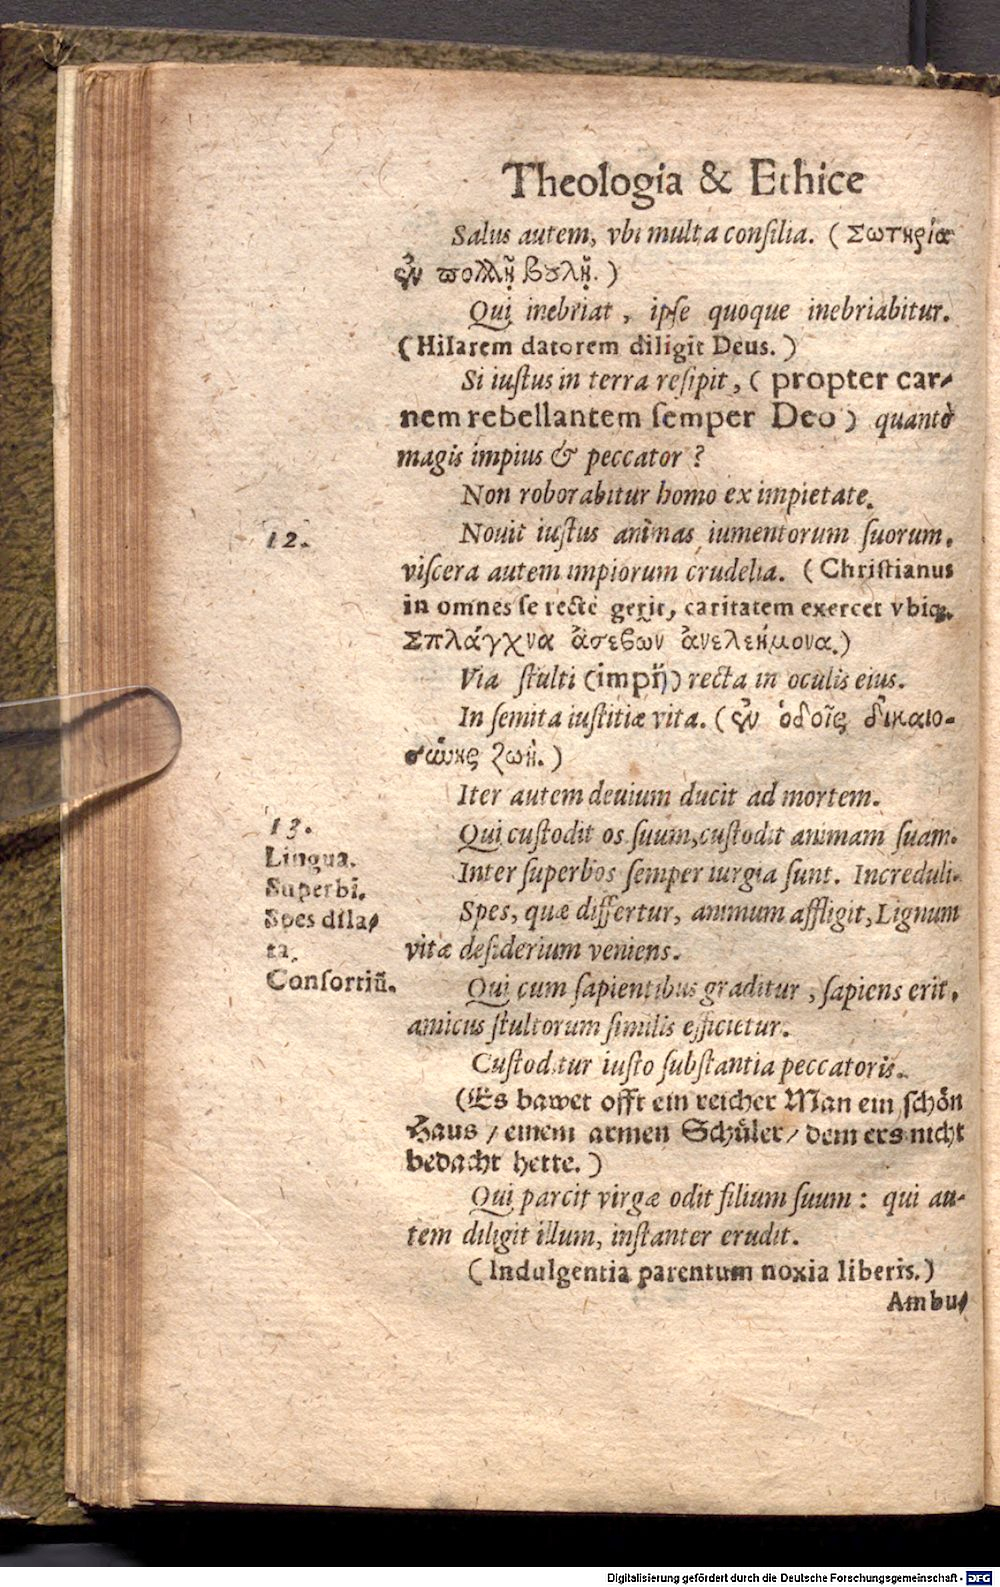 Theologia & Ethice
Salus autem, vbi multa consilia. (Σωτηρία
ἐν πολλῇ βουλῇ.)
Qui inebriat, ipse quoque inebriabitur.
(Hilarem datorem diligit Deus.)
Si iustus in terra resipit, (propter car-
nem rebellantem semper Deo) quantò
magis impius & peccator?
Non roborabitur homo ex impietate.
12.
Nouit iustus animas iumentorum suorum,
viscera autem impiorum crudelia. (Christianus
in omnes se rectè gerit, caritatem exercet vbiq;.
Σπλάγχνα ἀσεβῶν ἀνελεήμονα.)
Via stulti (impij) recta in oculis eius.
In semita iustitiæ vita. (ἐν ὁδοῖς δικαιο-
σύνης ζωή.)
Iter autem deuium ducit ad mortem.
13.
Lingua.
Superbi.
Spes dila-
ta.
Consortiū.
Qui custodit os suum, custodit animam suam.
Inter superbos semper iurgia sunt. Increduli.
Spes, quæ differtur, animum affligit, Lignum
vitæ desiderium veniens.
Qui cum sapientibus graditur, sapiens erit,
amicus stultorum similis efficietur.
Custoditur iusto substantia peccatoris.
(Es bawet offt ein reicher Man ein schön
Haus / einem armen Schüler / dem ers nicht
bedacht hette.)
Qui parcit virgæ odit filium suum: qui au-
tem diligit illum, instanter erudit.
(Indulgentia parentum noxia liberis.)
Ambu-
Digitalisierung gefördert durch die Deutsche Forschungsgemeinschaft - DFG